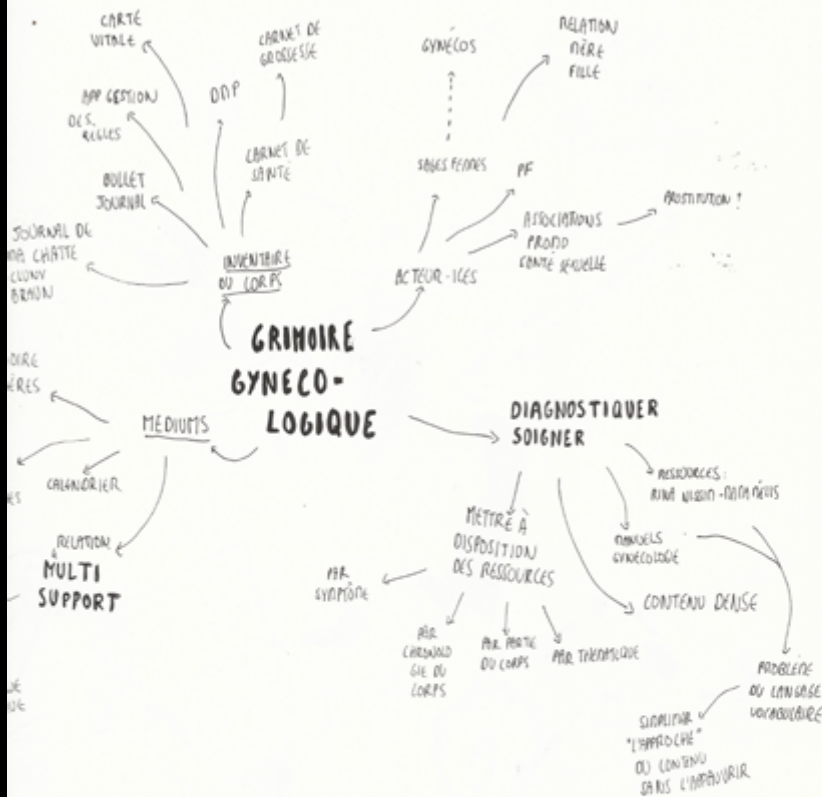 CARTE
VITALE
APP GESTION
DES
RÈGLES
BULLET
JOURNAL
JOURNAL DE
MA CHATTE
CLUNY
BRAUN
DMP
CARNET DE
GROSSESSE
CARNET DE
SANTÉ
INVENTAIRE
DU CORPS
GYNÉCOS
SAGES FEMMES
RELATION
MÈRE
FILLE
PF
ASSOCIATIONS
PROMO
SANTÉ SEXUELLE
PROSTITUTION ?
ACTEUR·ICES
GRIMOIRE
GYNECO-
LOGIQUE
MEDIUMS
OIRE
ÈRES
ES
CALENDRIER
RELATION
MULTI
SUPPORT
UE
DIAGNOSTIQUER
SOIGNER
METTRE À
DISPOSITION
DES RESSOURCES
PAR
SYMPTÔME
PAR
CHRONOLO
GIE DU
CORPS
PAR PARTIE
DU CORPS
PAR THÉMATIQUE
RESSOURCES :
RINA NISSIM -
MANUELS
GYNÉCOLOGIE
CONTENU DENSE
PROBLÈME
DU LANGAGE
VOCABULAIRE
SIMPLIFIER
"L'APPROCHE"
DU CONTENU
SANS L'APPAUVRIR